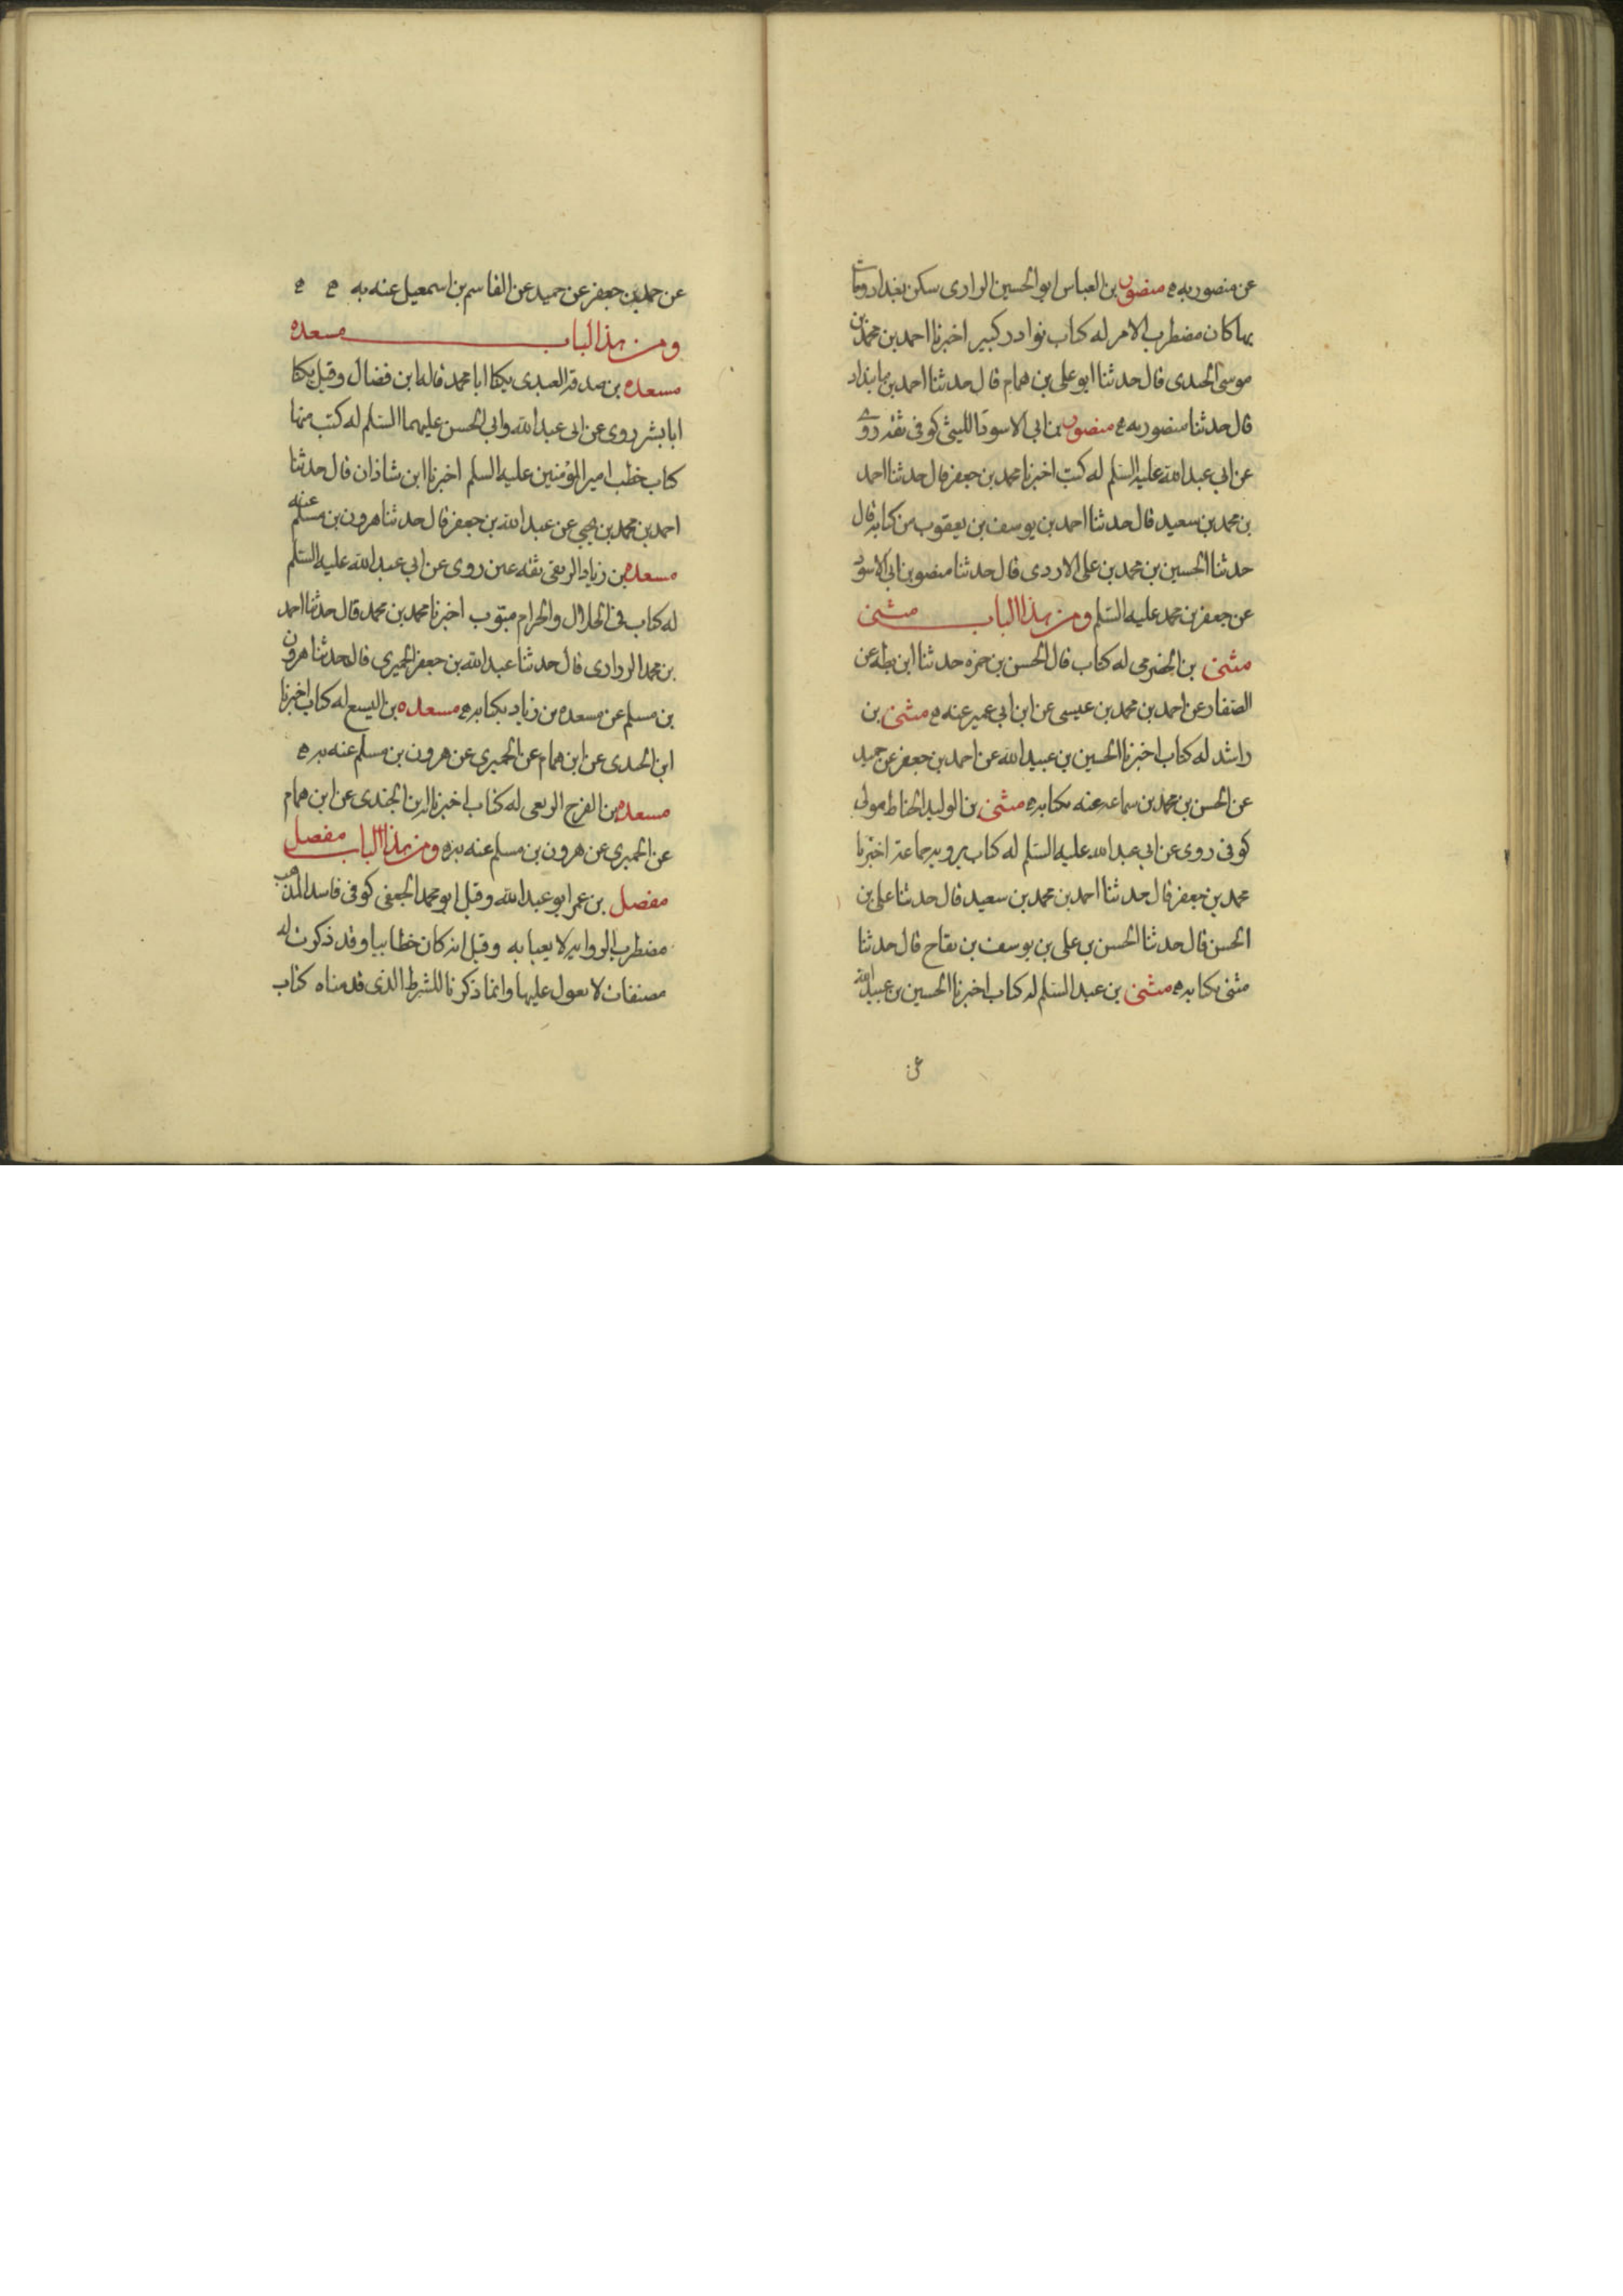 عن منصور به ه منصور بن العباس ابو الحسين الرازى سكن بغداد ومات
بها كان مضطرب الامر له كتاب نوادر كبير اخبرنا احمد بن محمد بن
موسى الجندى قال حدثنا ابو على بن همام قال حدثنا احمد بن مابنداد
قال حدثنا منصور به ه منصور بن ابى الاسود الليثى كوفى ثقة روى
عن ابي عبد الله عليه السلم له كتب اخبرنا محمد بن جعفر قال حدثنا احمد
بن محمد بن سعيد قال حدثنا احمد بن يوسف بن يعقوب من كتابه قال
حدثنا الحسين بن محمد بن على الازدى قال حدثنا منصور بن ابى الاسود
عن جعفر بن محمد عليه السلم ومن هذا الباب مثنى
مثنى بن الحضرمى له كتاب قال الحسن بن حمزه حدثنا ابن بطه عن
الصفار عن احمد بن محمد بن عيسى عن ابن ابي عمير عنه ه مثنى بن
راشد له كتاب اخبرنا الحسين بن عبيد الله عن احمد بن جعفر عن حميد
عن الحسن بن محمد بن سماعه عنه بكتابه ه مثنى بن الوليد الحناط مولى
كوفى روى عن ابي عبد الله عليه السلم له كتاب يرويه جماعة اخبرنا
محمد بن جعفر قال حدثنا احمد بن محمد بن سعيد قال حدثنا على بن
الحسن قال حدثنا الحسن بن على بن يوسف بن بقاح قال حدثنا
مثنى بكتابه ه مثنى بن عبد السلم له كتاب اخبرنا الحسين بن عبيد الله
عن
عن احمد بن جعفر عن حميد عن القاسم بن اسمعيل عنه به ه ه
ومن هذا الباب مسعده
مسعده بن صدقة العبدى يكنا ابا محمد قاله ابن فضال وقيل يكنا
ابا بشر روى عن ابى عبد الله وابي الحسن عليهما السلم له كتب منها
كتاب خطب امير المؤمنين عليه السلم اخبرنا ابن شاذان قال حدثنا
احمد بن محمد بن يحيي عن عبد الله بن جعفر قال حدثنا هرون بن مسلم عنه
مسعده بن زياد الربعى ثقه عين روى عن ابي عبد الله عليه السلم
له كتاب فى الحلال والحرام مبوب اخبرنا محمد بن محمد قال حدثنا احمد
بن محمد الزرارى قال حدثنا عبد الله بن جعفر الحميرى قال حدثنا هرون
بن مسلم عن مسعده بن زياد بكتابه ه مسعده بن اليسع له كتاب اخبرنا
ابن الجندى عن ابن همام عن الحميرى عن هرون بن مسلم عنه به ه
مسعده بن الفرج الربعى له كتاب اخبرنا ابن الجندى عن ابن همام
عن الحميرى عن هرون بن مسلم عنه به ه ومن هذا الباب مفضل
مفضل بن عمر ابو عبد الله وقيل ابو محمد الجعفى كوفى فاسد المذهب
مضطرب الروايه لا يعبا به وقيل انه كان خطابيا وقد ذكرت له
مصنفات لا يعول عليها وانما ذكرنا للشرط الذى قدمناه كتاب